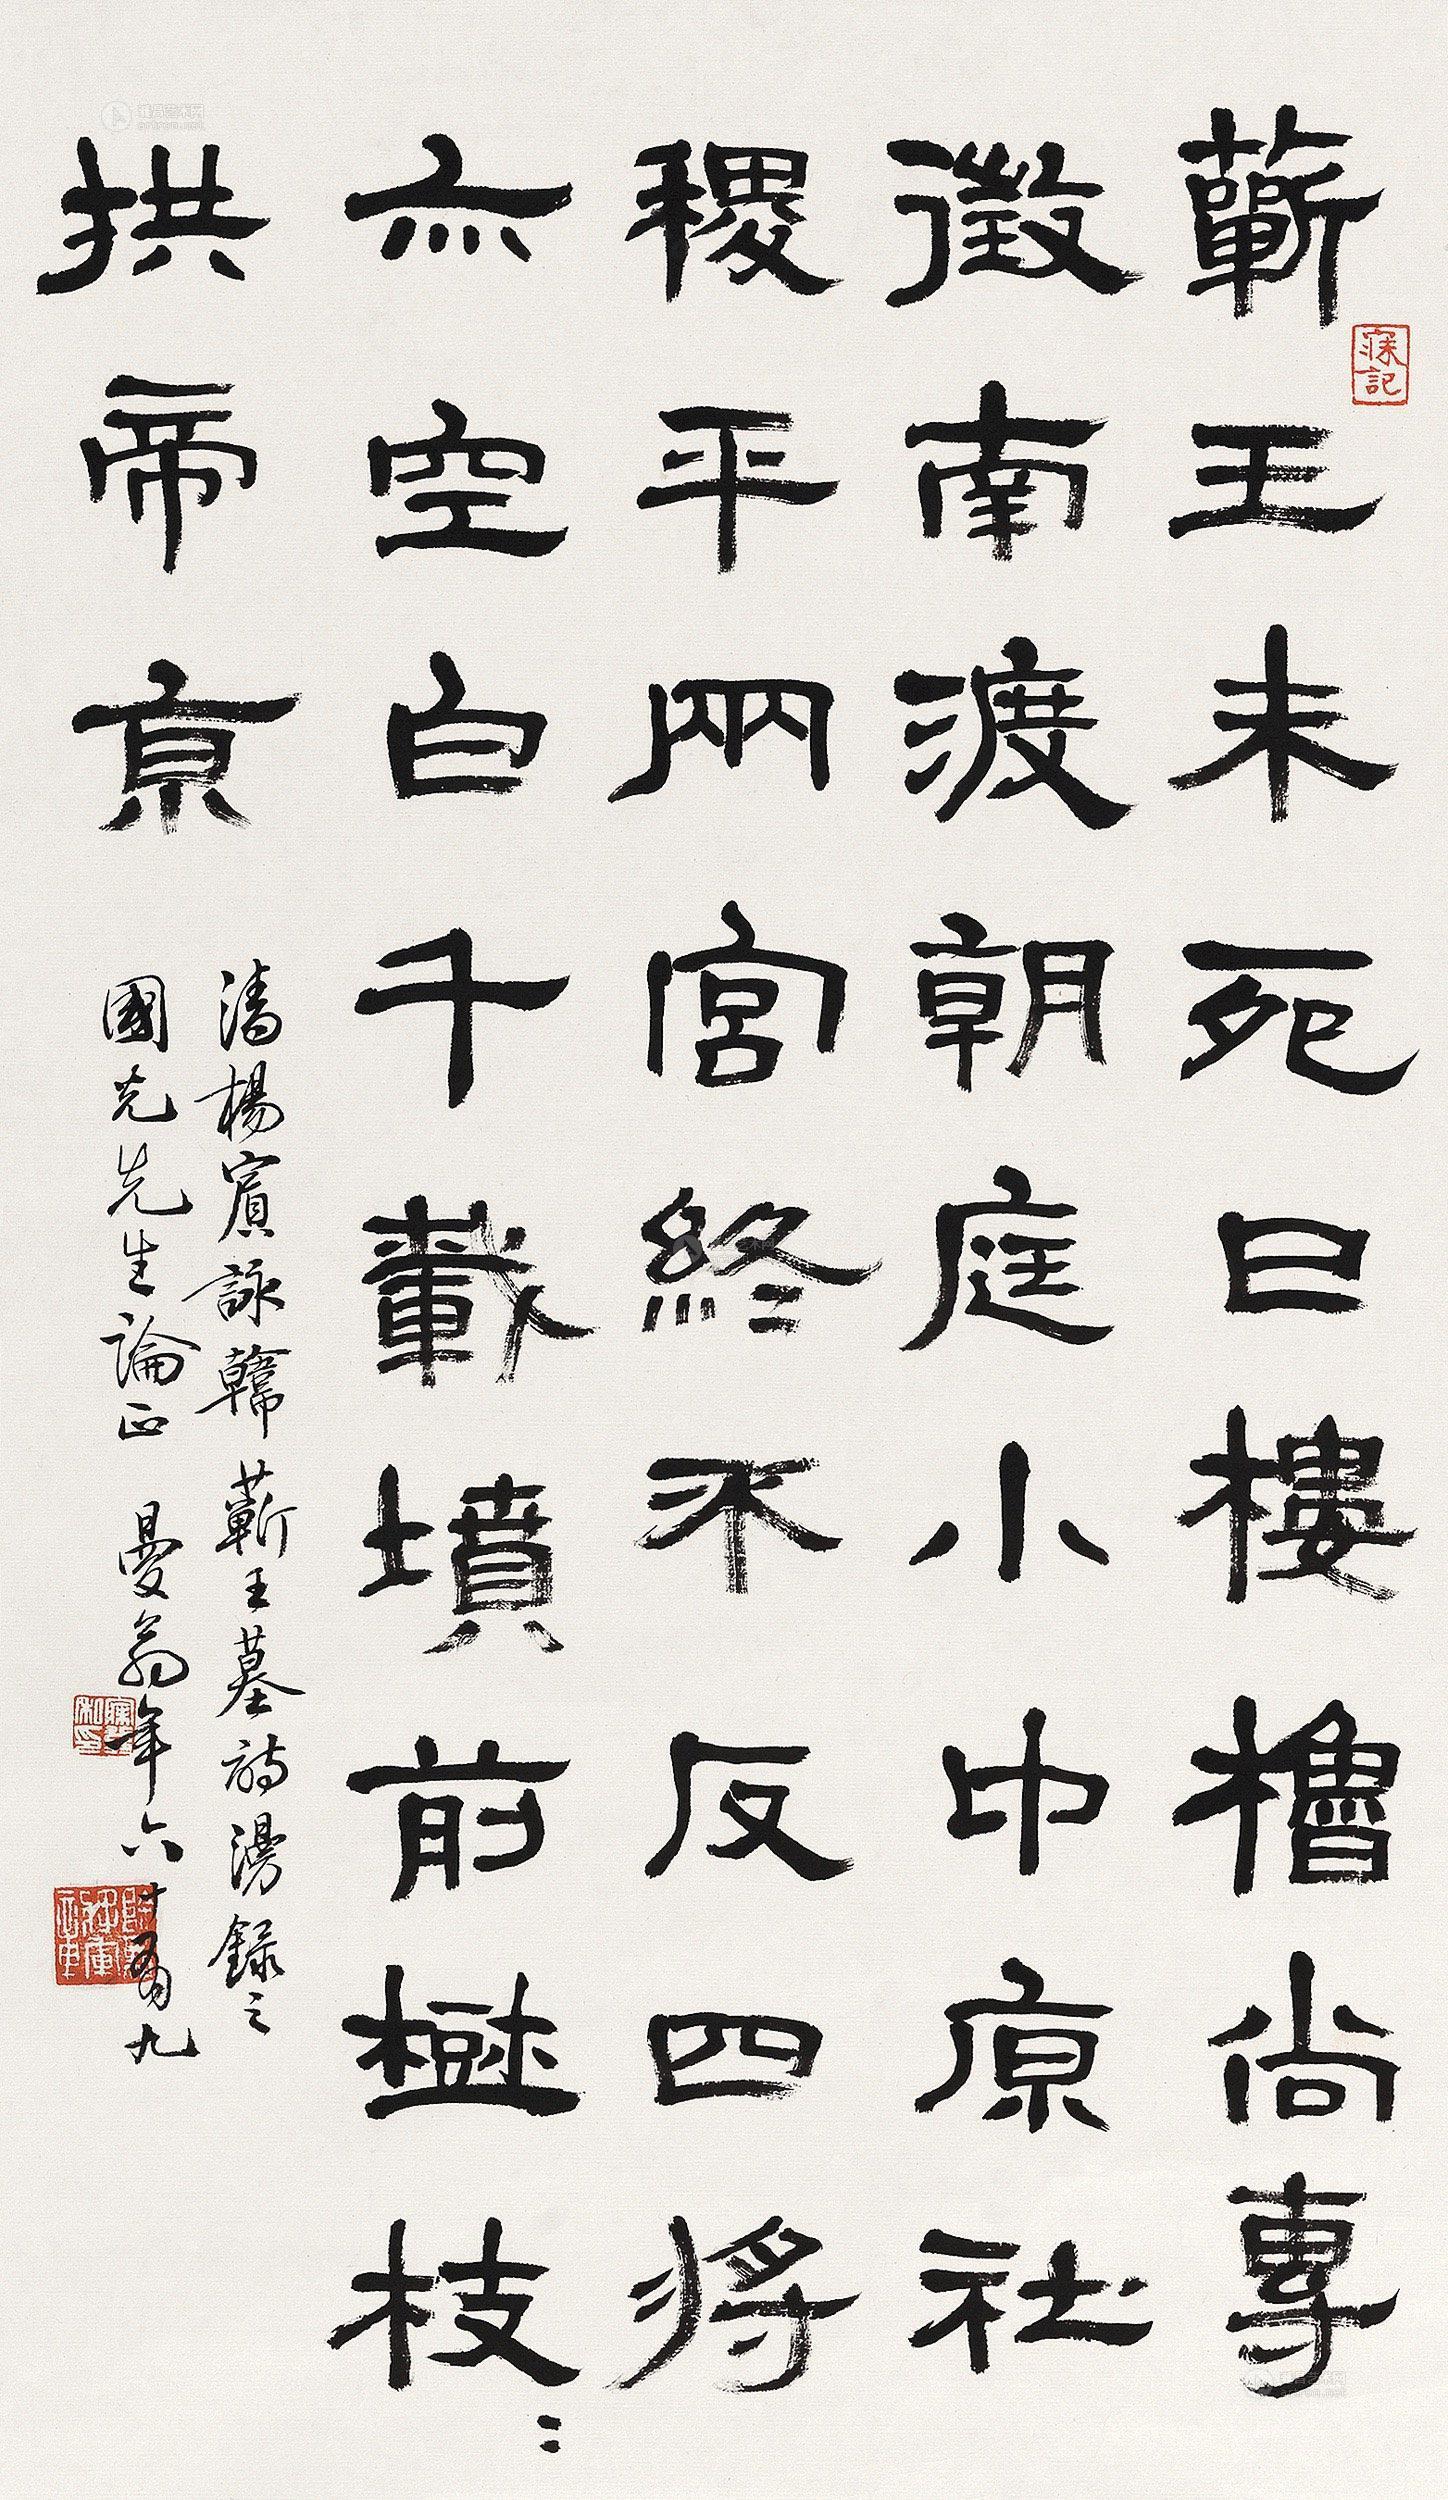 蘄王未死日樓櫓尚專
徵南渡朝庭小中原社
稷平兩宮終不反四將
亦空白千載墳前樹枝〻
拱帝京
清楊賓詠韓蘄王墓詩漫錄之
國光先生論正 曼翁年六十有九
寐記
雅昌艺术网
artron.net